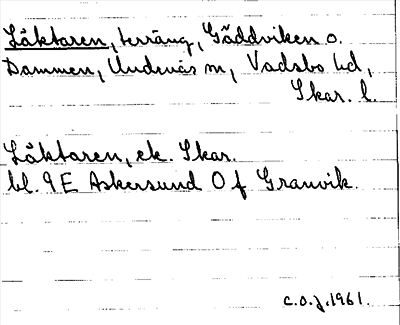 Läktaren, terräng, Gäddviken o.
Dammen, Undenäs sn, Vadsbo hd,
Skar. l.
Läktaren, ek. Skar.
bl. 9E Askersund O f Granvik.
C.O.J. 1961.